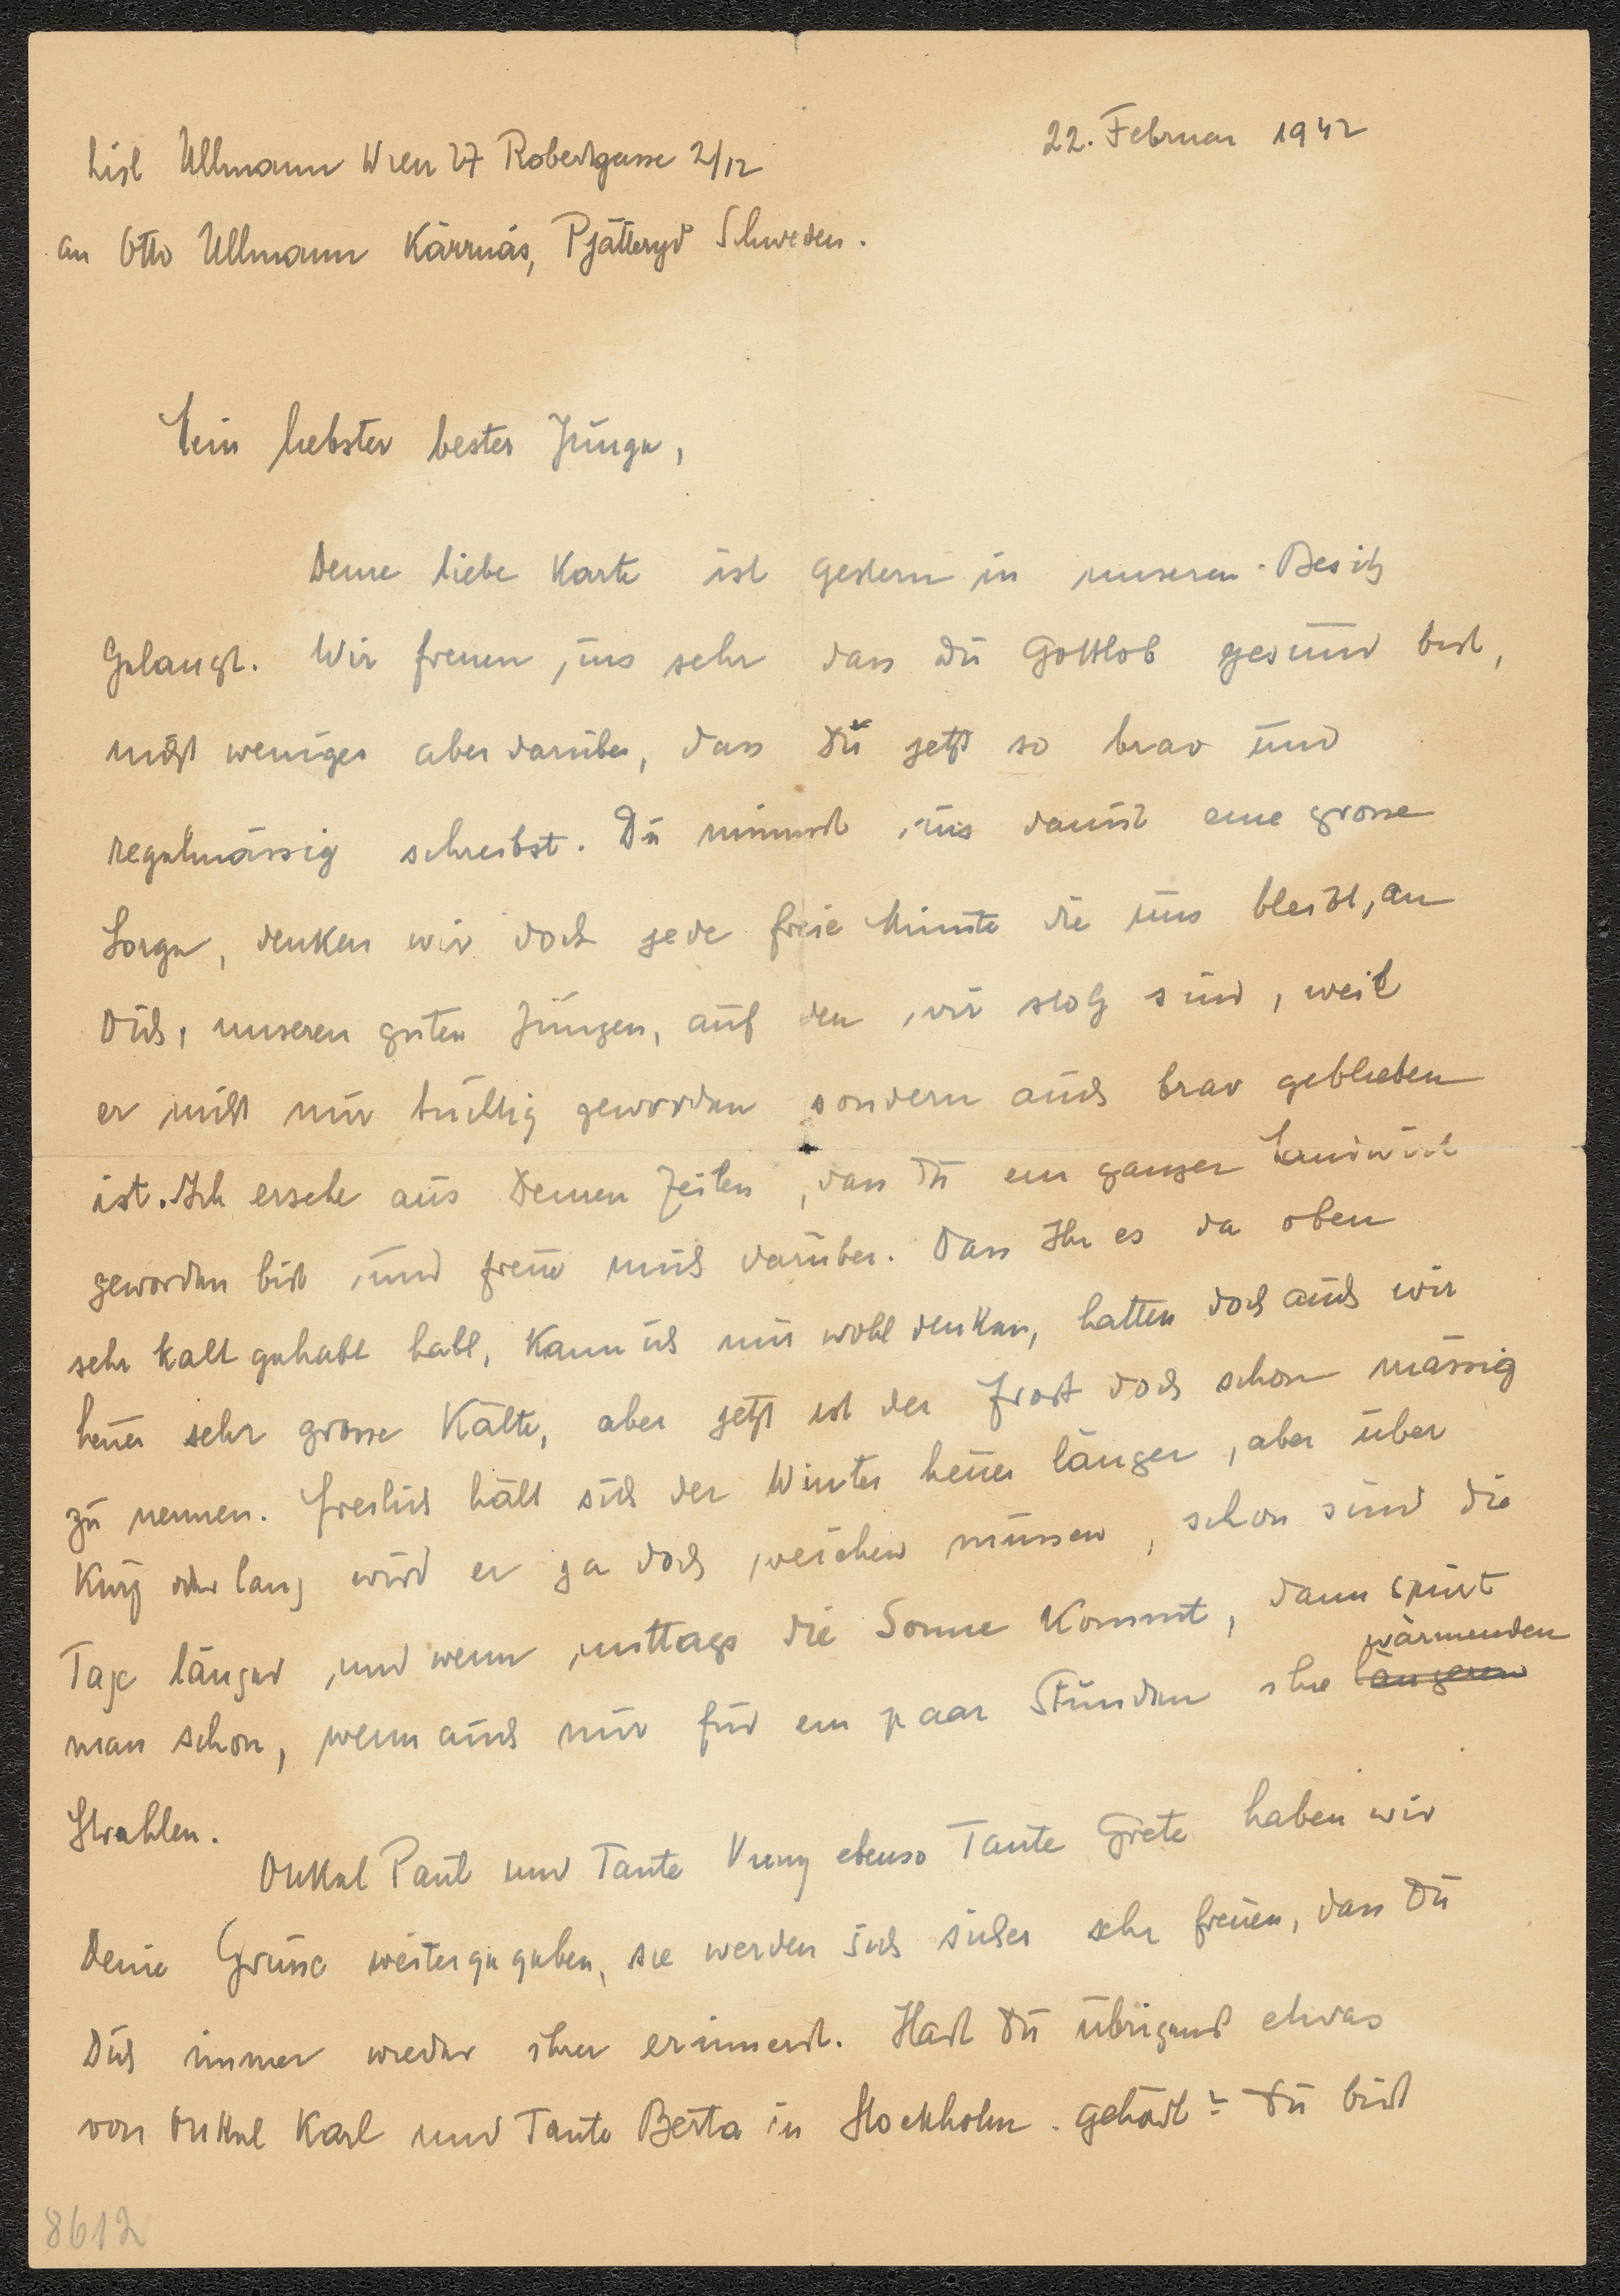 22. Februar 1942
Lisl Ullmann Wien 27 Robertgasse 2/12
an Otto Ullmann Kärrnäs, Pjätteryd Schweden.
Mein liebster bester Junge,
Deine liebe Karte ist gestern in unseren Besitz
gelangt. Wir freuen uns sehr dass Du Gottlob gesund bist,
nicht weniger aber darüber, dass Du jetzt so brav und
regelmässig schreibst. Du nimmst uns damit eine grosse
Sorge, denken wir doch jede freie Minute die uns bleibt, an
Dich, unseren guten Jungen, auf den wir stolz sind, weil
er nicht nur tüchtig geworden sondern auch brav geblieben
ist. Ich ersehe aus Deinen Zeilen, dass Du ein ganzer Landwirt
geworden bist und freue mich darüber. Dass Ihr es da oben
sehr kalt gehabt habt, kann ich mir wohl denken, hatten doch auch wir
heuer sehr grosse Kälte, aber jetzt ist der Frost doch schon mässig
zu nennen. Freilich hält sich der Winter heuer länger, aber über
kurz oder lang wird er ja doch weichen müssen, schon sind die
Tage länger und wenn mittags die Sonne kommt, dann spürt
man schon, wenn auch nur für ein paar Stunden ihre längeren wärmenden
Strahlen.
Onkel Paul und Tante Vuny ebenso Tante Grete haben wir
Deine Grüsse weitergegeben, sie werden sich sicher sehr freuen, dass Du
Dich immer wieder ihrer erinnerst. Hast Du übrigens etwas
von Onkel Karl und Tante Berta in Stockholm. gehört? Du bist
8612